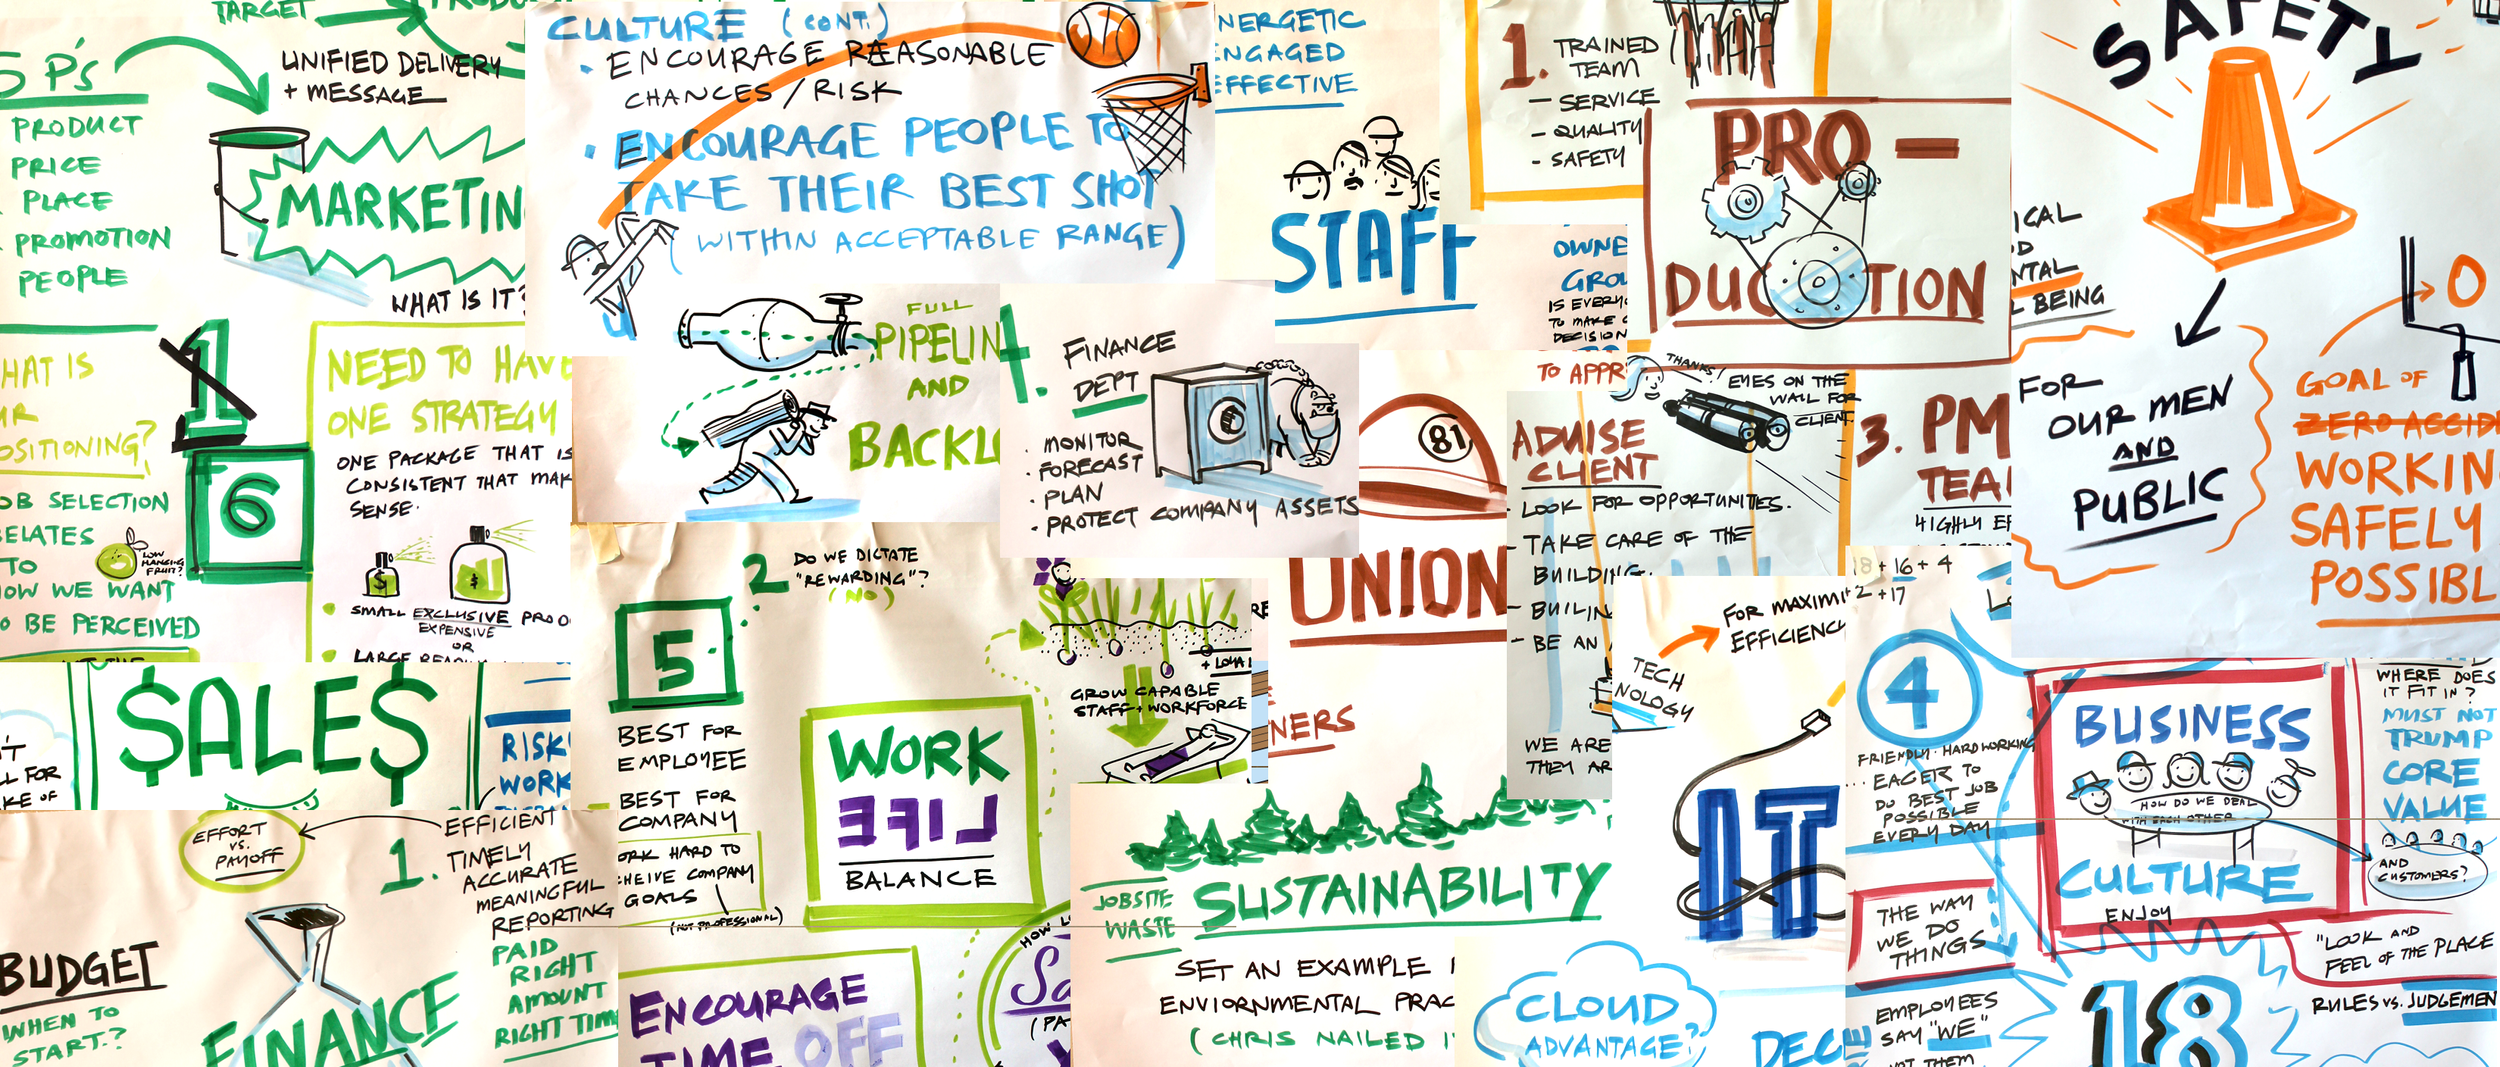 TARGET
5 P's
UNIFIED DELIVERY
+ MESSAGE
PRODUCT
PRICE
PLACE
PROMOTION
PEOPLE
MARKETIN
WHAT IS IT?
HAT IS
UR
OSITIONING?
1
6
OB SELECTION
ELATES
TO
OW WE WANT
O BE PERCEIVED
LOW
HANGING
FRUIT?
NEED TO HAVE
ONE STRATEGY
ONE PACKAGE THAT IS
CONSISTENT THAT MAK
SENSE.
$
$
SMALL EXCLUSIVE PROD
EXPENSIVE
OR
CULTURE (CONT.)
• ENCOURAGE REASONABLE
CHANCES / RISK
• ENCOURAGE PEOPLE TO
TAKE THEIR BEST SHOT
(WITHIN ACCEPTABLE RANGE)
FULL
PIPELIN
AND
BACKL
1.
FINANCE
DEPT
• MONITOR
• FORECAST
• PLAN
• PROTECT COMPANY ASSETS
NERGETIC
ENGAGED
EFFECTIVE
STAFF
1. TRAINED
TEAM
- SERVICE
- QUALITY
- SAFETY
OWNE
GROU
IS EVERY
TO MAKE
DECISION
TO APPR
PRO-
DUCTION
81
UNION
NERS
THANKS!
EYES ON THE
WALL FOR
CLIENT
ADVISE
CLIENT
- LOOK FOR OPPORTUNITIES.
- TAKE CARE OF THE
BUILDING.
- BUILIN
- BE AN
WE ARE
THEY AR
3. PM
TEA
HIGHLY EF
SAFETY
ICAL
NTAL
L BEING
FOR
OUR MEN
AND
PUBLIC
0
GOAL OF
ZERO ACCID
WORKIN
SAFELY
POSSIBL
$ALE$
'T
LL FOR
KE OF
RISK
WORK
EFFORT
VS.
PAYOFF
1. EFFICIENT
TIMELY
ACCURATE
MEANINGFUL
REPORTING
BUDGET
WHEN TO
START.?
FINANCE
PAID
RIGHT
AMOUNT
RIGHT TIM
2. DO WE DICTATE
"REWARDING"?
(NO)
5.
BEST FOR
EMPLOYEE
BEST FOR
COMPANY
ORK HARD TO
HEIVE COMPANY
GOALS
(NOT PROFESSIONAL)
WORK
LIFE
BALANCE
ENCOURAGE
TIME OFF
HOW
Sa
(PA
GROW CAPABLE
STAFF + WORKFORCE
JOBSITE
WASTE
SUSTAINABILITY
SET AN EXAMPLE
ENVIORNMENTAL PRAC
(CHRIS NAILED I
TECH
NOLOGY
FOR MAXIMI
EFFICIENC
IT
CLOUD
ADVANTAGE?
DEC
18 + 16 + 4
+ 2 + 17
4
FRIENDLY. HARDWORKING
... EAGER TO
DO BEST JOB
POSSIBLE
EVERY DAY
THE WAY
WE DO
THINGS
EMPLOYEES
SAY "WE"
NOT THEM
BUSINESS
HOW DO WE DEAL
WITH EACH OTHER
CULTURE
ENJOY
18
WHERE DOES
IT FIT IN?
MUST NOT
TRUMP
CORE
VALUE
AND
CUSTOMERS?
"LOOK AND
FEEL OF THE PLACE
RULES VS. JUDGEMEN